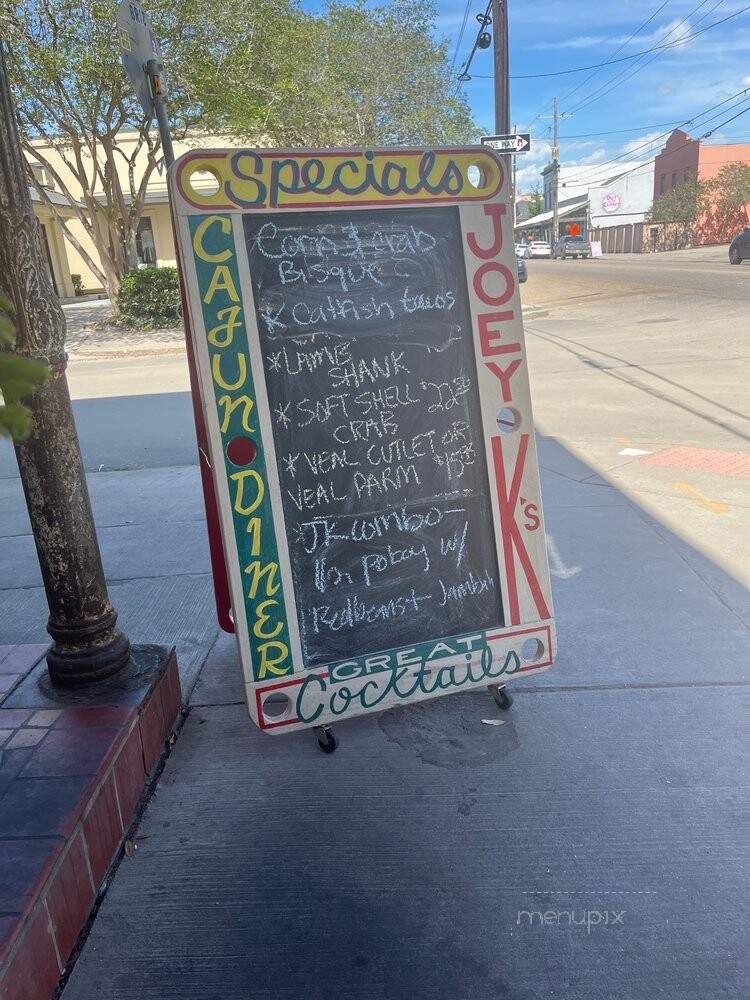 Specials
CAJUN DINER
JOEY K's
Corn & crab
Bisque
Catfish tacos
*LAMB
SHANK
*SOFT SHELL $22
CRAB
*VEAL CUTLET or
VEAL PARM
*JK combo-
poboy w/
Redbeans + Jamb
GREAT
Cocktails
ONE WAY
menupix